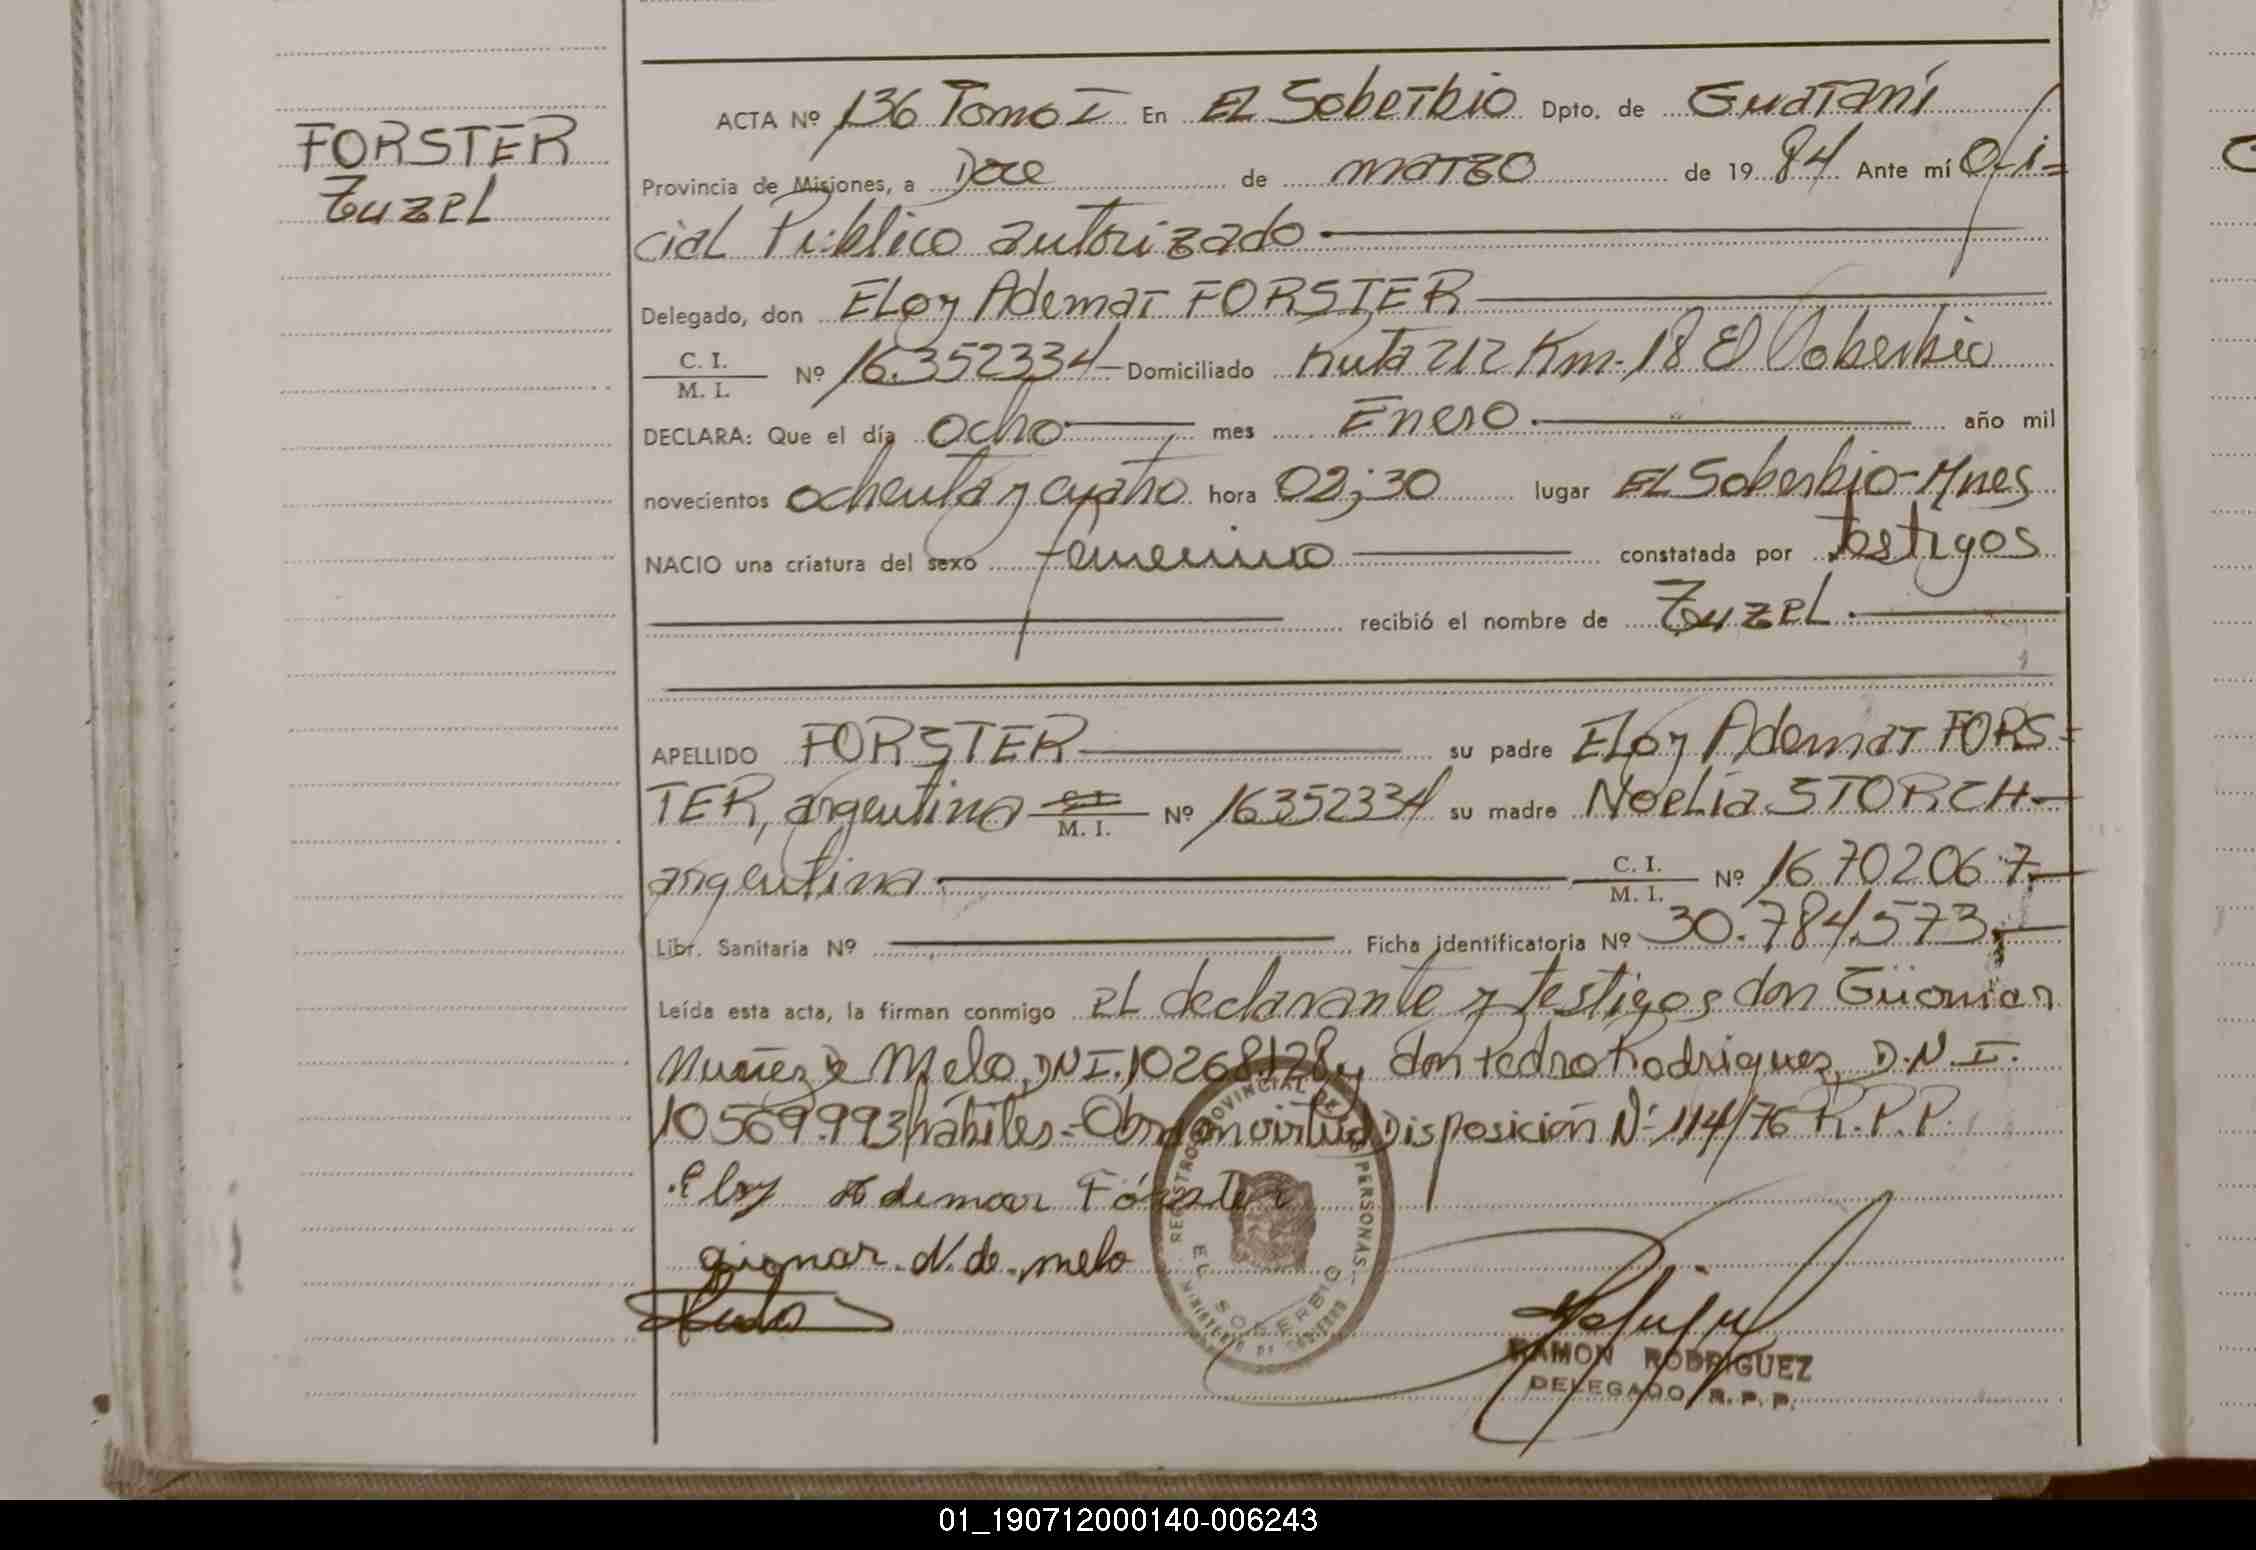 FORSTER
Zuzel
ACTA Nº 136 Tomo I En EL Soberbio Dpto. de Guaraní
Provincia de Misiones, a Doce de marzo de 1984 Ante mí Ofi=
cial Público autorizado
Delegado, don ELoy Ademar FORSTER
C. I.
M. I. Nº 16.352334 Domiciliado Ruta 212 Km. 18 El Soberbio
DECLARA: Que el día ocho mes Enero año mil
novecientos ochenta y cuatro hora 02;30 lugar EL Soberbio-Mnes
NACIO una criatura del sexo femenino constatada por testigos
recibió el nombre de Zuzel
APELLIDO FORSTER su padre ELoy Ademar FORS=
TER, argentino C. I. M. I. Nº 16352334 su madre Noelia STORCH
argentina C. I. M. I. Nº 16702067
Libr. Sanitaria Nº Ficha identificatoria Nº 30.784.573.
Leída esta acta, la firman conmigo el declarante y testigos don Güiomar
Nuñez de Melo, DNI. 10268.128 y don Pedro Rodriguez, D.N.I.
10569.993 hábiles.-Obra en virtud Disposición Nº 114/76 R.P.P.
Eloy Ademar Förster
giomar. N. de. melo
REGISTRO PROVINCIAL DE LAS PERSONAS
EL SOBERBIO
MINISTERIO DE GOBIERNO
RAMON RODRIGUEZ
DELEGADO R. P. P.
01_190712000140-006243